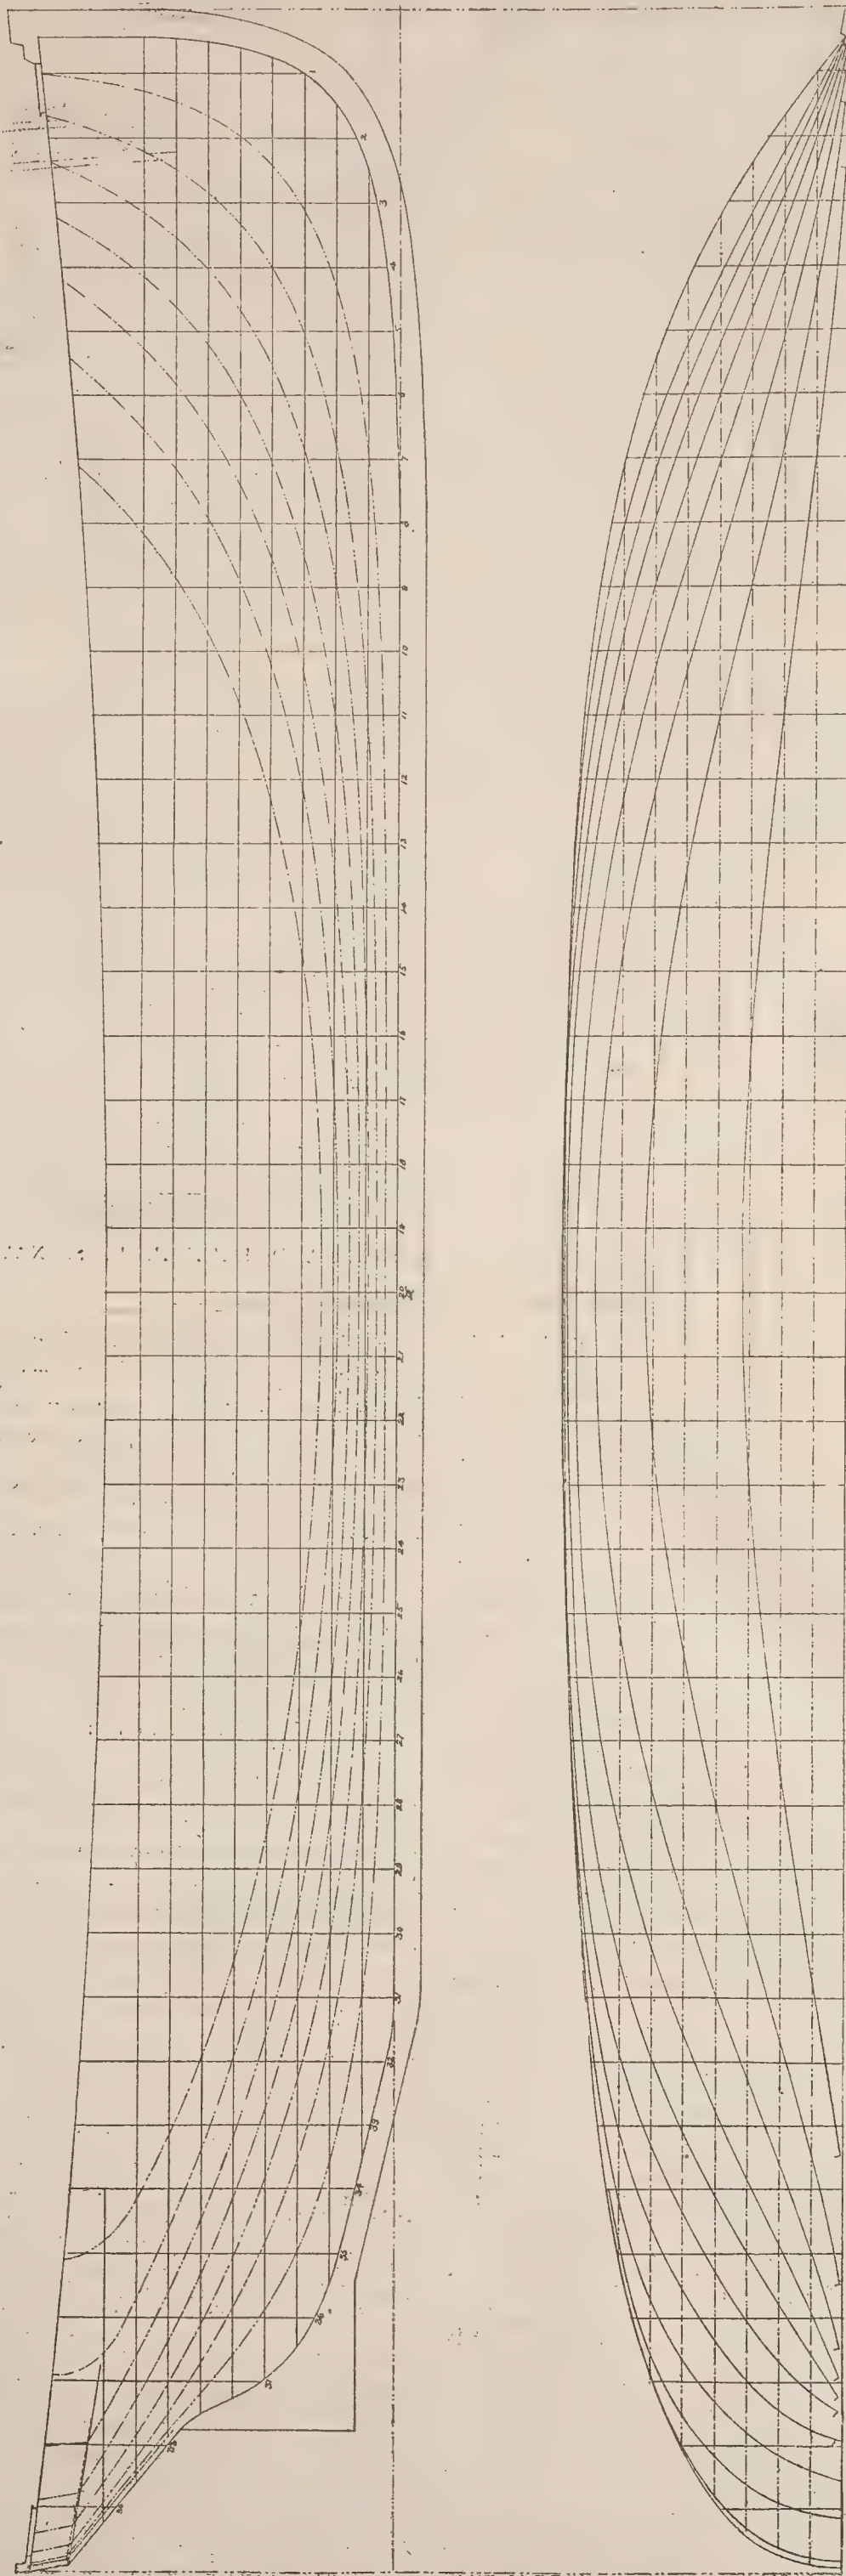 1
2
3
4
5
6
7
8
9
10
11
12
13
14
15
16
17
18
19
20
21
22
23
24
25
26
27
28
29
30
31
32
33
34
35
36
37
38
39